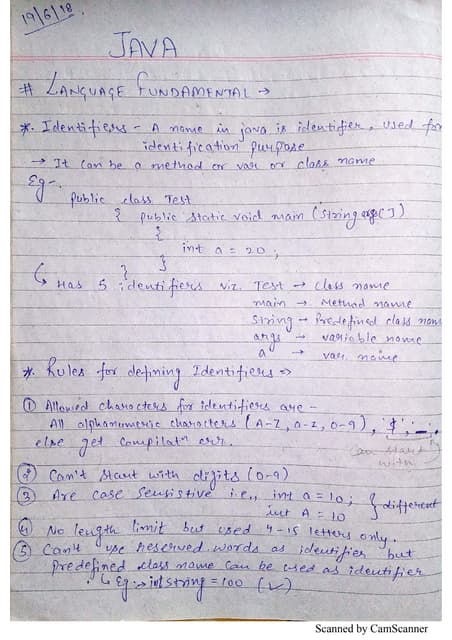 19/6/18
JAVA
# LANGUAGE FUNDAMENTAL →
*. Identifiers - A name in java is identifier, used for
identification purpose
→ It can be a method or var or class name
Eg -
public class Test
{ public static void main (String args[])
{
int a = 20;
}
}
↳ Has 5 identifiers viz. Test → class name
main → Method name
String → Predefined class name
args → variable name
a → var. name
*. Rules for defining Identifiers ⇒
① Allowed characters for identifiers are -
All alphanumeric characters (A-Z, a-z, 0-9), '$', '_',
else get compilatn err.
can start with
② Can't start with digits (0-9)
③ Are case sensistive i.e., int a = 10; } different
int A = 10
④ No length limit but used 4-15 letters only.
⑤ Can't use reserved words as identifier but
Predefined class name can be used as identifier.
↳ Eg :→ int string = 100 (✓)
Scanned by CamScanner